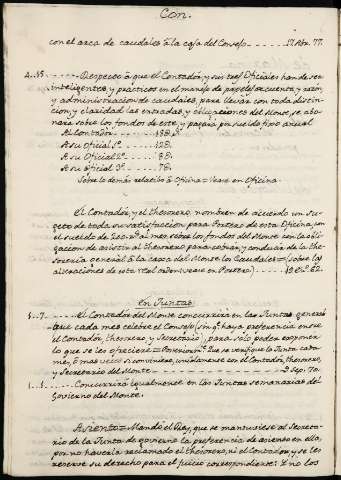 Con.
con el arca de caudales â la casa del Consejo - - - - - 17. Abr. 77.
Respecto â que el Contador, y sus tres Oficiales han de ser
inteligentes, y prácticos en el manejo de papeles, cuenta, y razón,
y administracion de caudales, para llevar con toda distin-
cion, y claridad las entradas, y del Monte, se abo-
nará sobre los fondos de este, y pagará por sueldo fixo anual
Al Contador
A su Oficial 1º
A su Oficial 2º
A su Oficial 3º
Sobre lo demás relatibo â Oficina = Vease en Oficina.
El Contador, y el thesorero, nombren de acuerdo un su-
geto de toda su satisfaccion para Portero de esta Oficina, con
el sueldo de 200 al mes sobre los fondos del Monte con la obli-
gacion de asistir al thesorero para cobrar, y conducir de la the-
soreria general â la arca del Monte los Caudales = (sobre las
alteraciones de esta Real orden vease en Portero)
En Juntas
El Contador del Monte concurrirá en las Juntas genera-
que cada mes celebre el Consejo (sin q.e haya preferencia entre
el Contador, thesorero, y Secretario), para solo poder exponer
lo que se les ofreciere = Que se verifique la Junta cada
mes, ô mas veces si conviniere, unidamente con el Contador, thesorero,
y Secretario del Monte
Concurrirá igualmente en las Juntas semanarias del
Govierno del Monte.
Asiento = Mandó el Rey, que se mantuviese al Secreta-
rio de la Junta de govierno la preferencia de asiento en ella,
por no haverla reclamado el thesorero, ni el Contador, y se les
reserve su derecho para el juicio correspondiente. Y no los